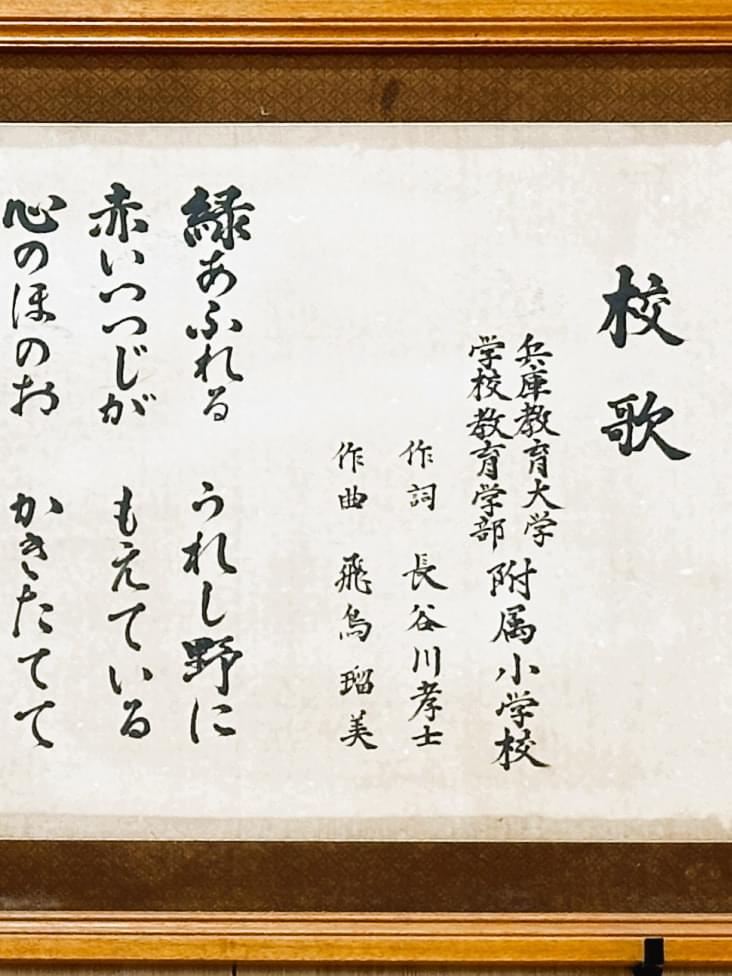 校歌
兵庫教育大学
学校教育学部
附属小学校
作詞 長谷川孝士
作曲 飛鳥瑠美
緑あふれる うれし野に
赤いつつじが もえている
心のほのお かきたてて